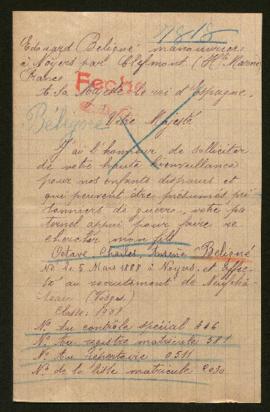 7818
Edouard Beligné, manouvrier
à Noyers par Clefmont (Hte Marne)
France
Fecho
à Sa Majesté le roi d'Espagne
Béligné
Votre Majesté
J'ai l'honneur de solliciter
de votre haute bienveillance
pour nos enfants disparus et
que peuvent être présumés pri
sonniers de guerre, votre pa
ternel appui pour faire re
chercher mon fils
Octave Charles Béligné
Né le 5 Mars 1888 à Noyers, et affec
té au recrutement de Neufchâ
teau (Vosges)
Classe 1908
No du contrôle spécial 446
No au registre matricule 581
No au Répertoire 0511
No de la liste matricule